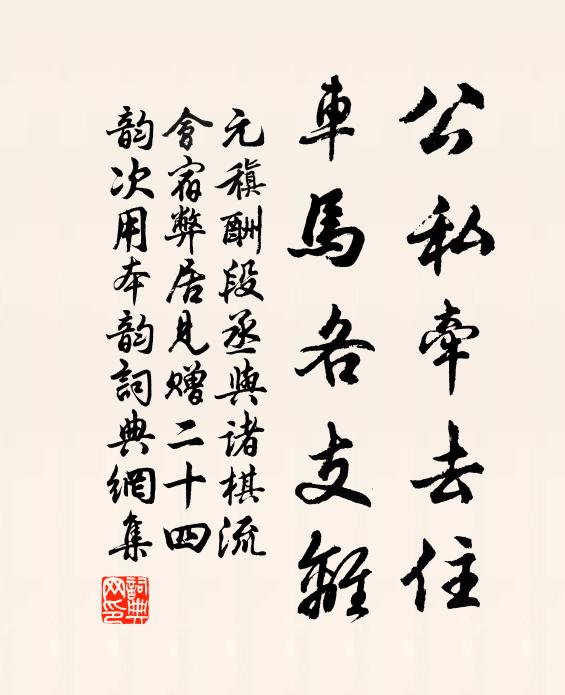 公私牽去住
車馬各支離
元稹酬段丞與諸棋流
會宿弊居見贈二十四
韵次用本韵詞典網集
詞典網印